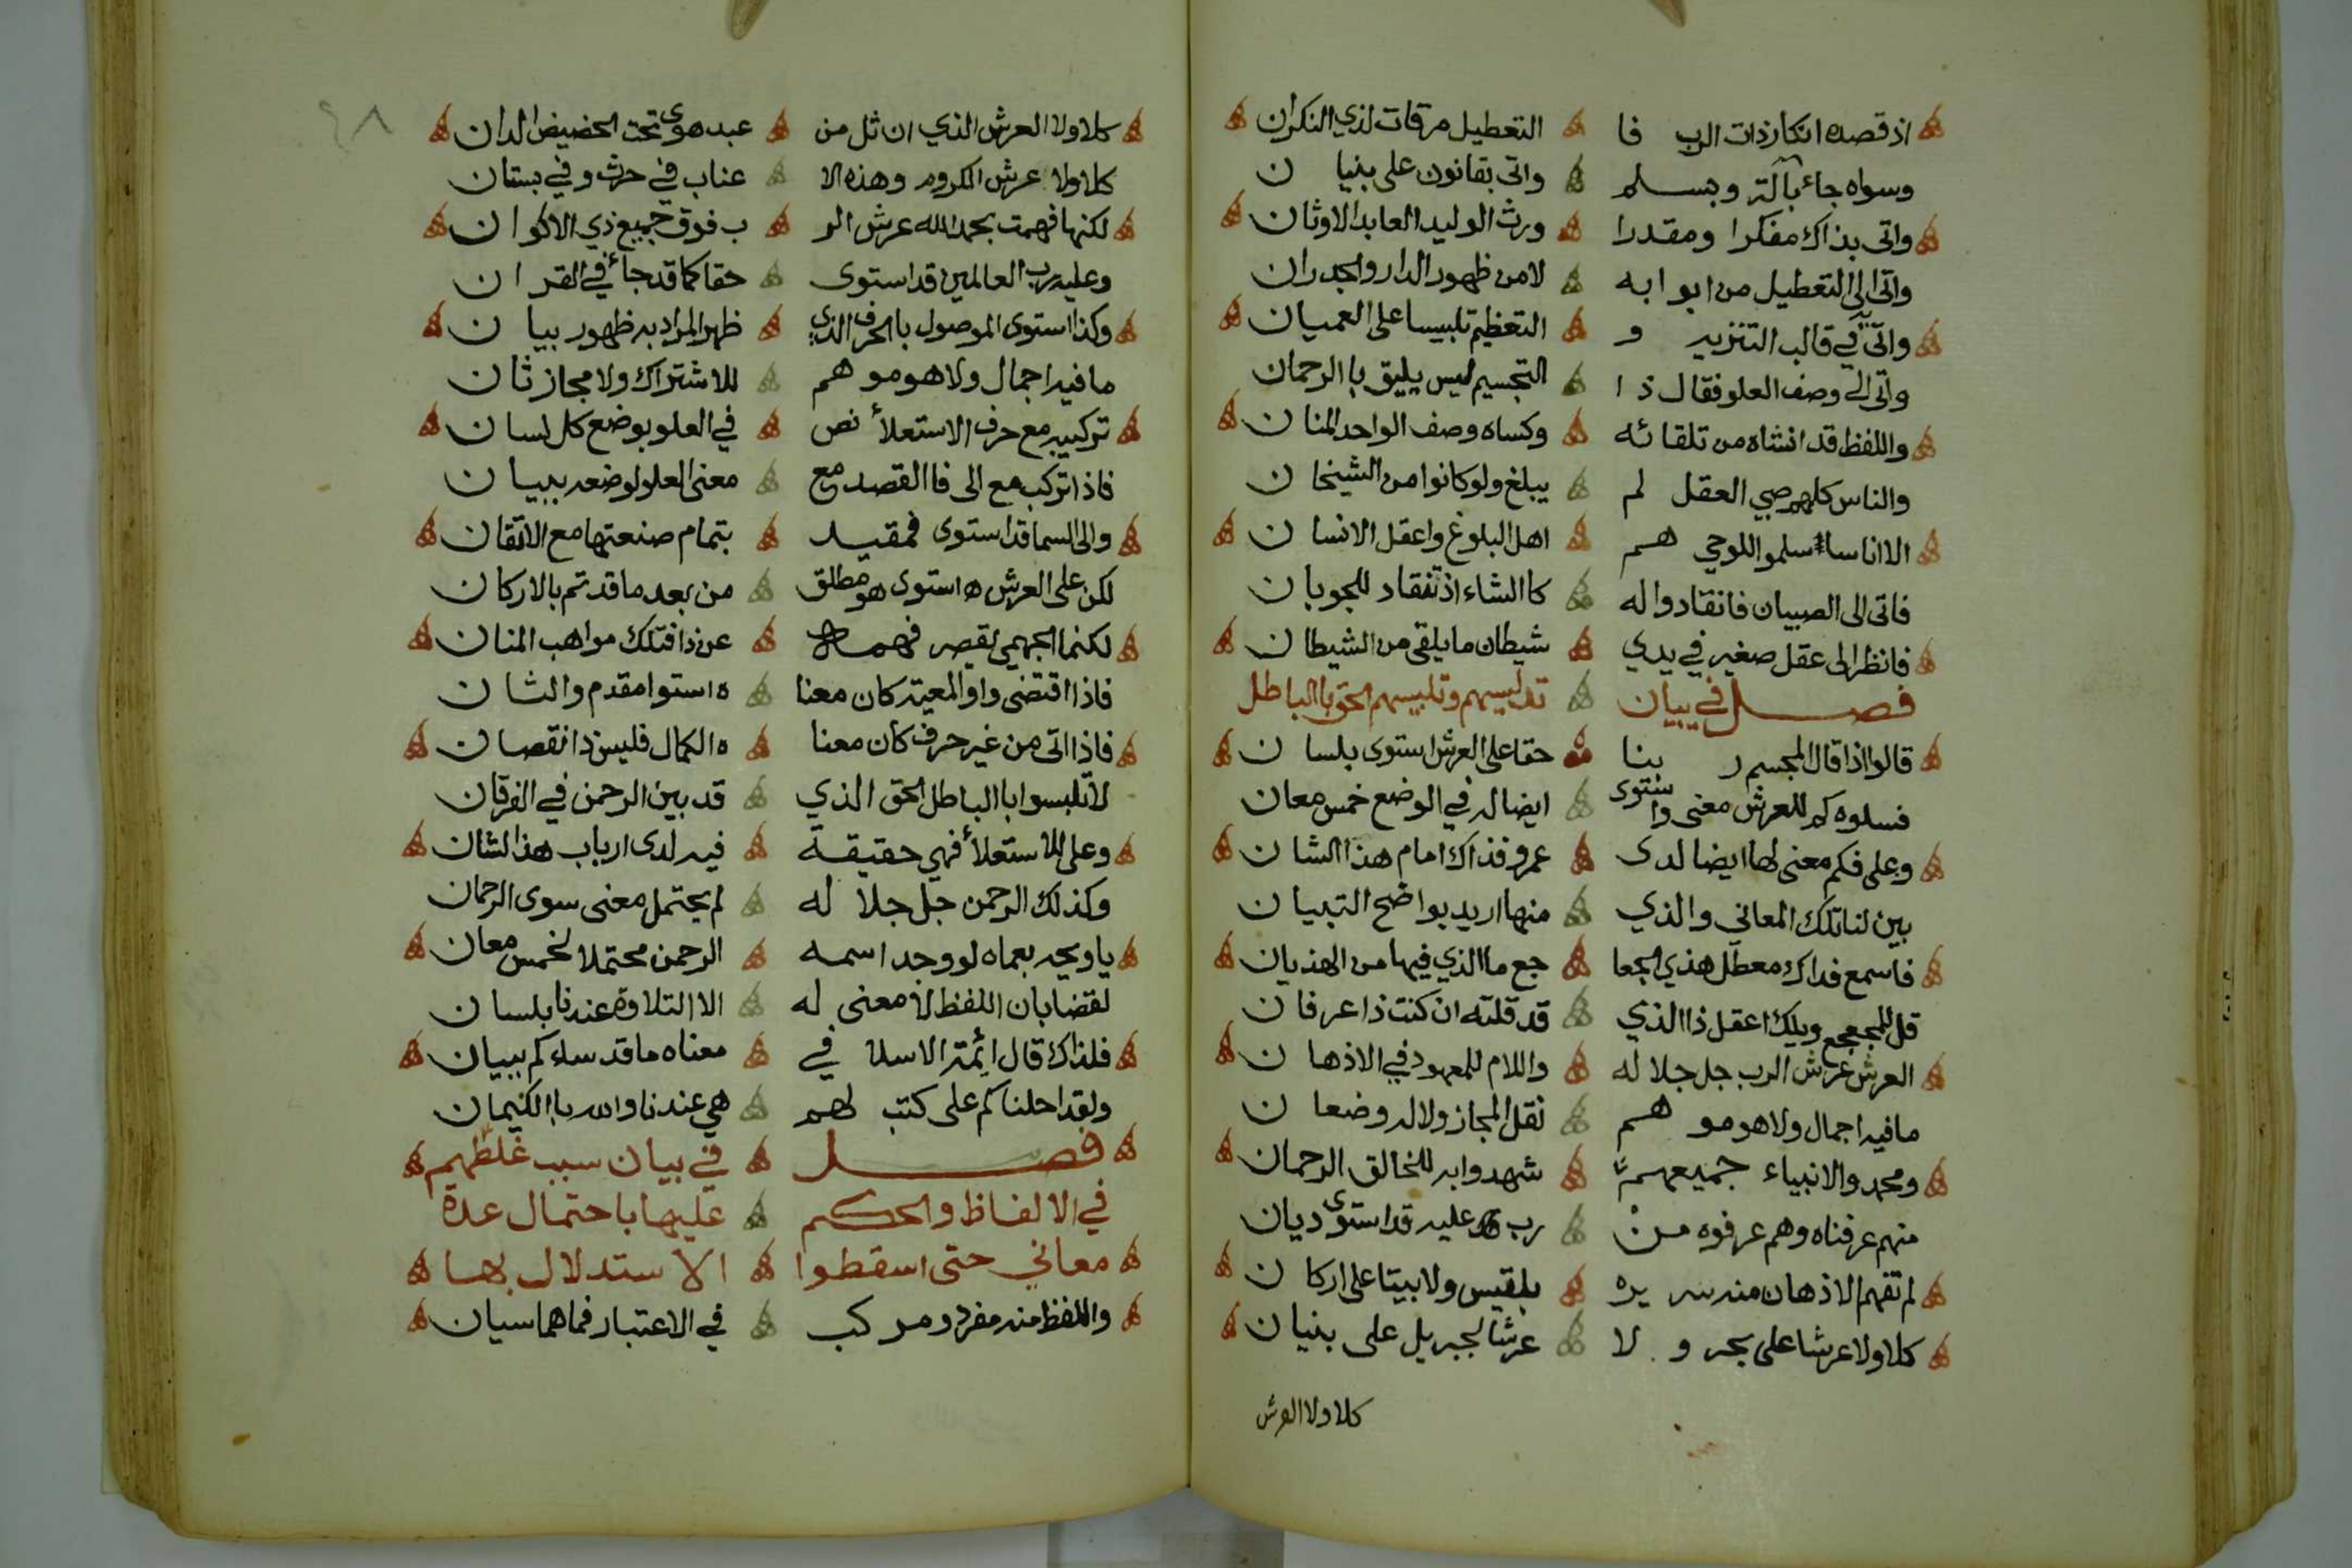 اذ قصده انكار ذات الرب فا التعطيل مرقات لذي النكران
وسواه جاء بآلة وبسلم واتى بقانون على بنيان
واتى بذاك مفكرا ومقدرا ورث الوليد العابد الاوثان
واتى الى التعطيل من ابوابه لا من ظهور الدار والجدران
واتى في قالب التنزيه و التعظيم تلبيسا على العميان
واتى الى وصف العلو فقال ذا التجسيم ليس يليق با الرحمان
واللفظ قد انشاه من تلقائه وكساه وصف الواحد المنان
والناس كلهم صبي العقل لم يبلغ ولو كانوا من الشيخان
الا اناسا سلموا للوحي هم اهل البلوغ واعقل الانسان
فاتى الى الصبيان فانقادوا له كا الشاء اذ تنقاد للجوبان
فانظر الى عقل صغير في يدي شيطان ما يلقى من الشيطان
فصل في بيان تدليسهم وتلبيسهم الحق با الباطل
قالوا اذا قال المجسم ربنا حقا على العرش استوى بلسان
فسلوه كم للعرش معنى واستوى ايضا له في الوضع خمس معان
وعلى فكم معنى لها ايضا لدى عمرو فذاك امام هذا الشان
بين لنا تلك المعاني والذي منها اريد بواضح التبيان
فاسمع فداك معطل هذي الجعا جع ما الذي فيها من الهذيان
قل للمجعجع ويلك اعقل ذا الذي قد قلته ان كنت ذا عرفان
العرش عرش الرب جل جلاله واللام للمعهود في الاذهان
مافيه اجمال ولا هو موهم نقل المجاز ولا له وضعان
ومحمد والانبياء جميعهم شهدوا به للخالق الرحمان
منهم عرفناه وهم عرفوه من رب عليه قد استوى ديان
لم تفهم الاذهان منه سرير بلقيس ولا بيتا على اركان
كلا ولا عرشا على بحر ولا عرشا لجبريل على بنيان
كلا ولا العرش
٤٨
كلا ولا العرش الذي ان ثل من عبد هوى تحت الحضيض الدان
كلا ولا عرش الكروم وهذه الا عناب في حرث وفي بستان
لكنها فهمت بحمد الله عرش الر ب فوق جميع ذي الاكوان
وعليه رب العالمين قد استوى حقا كما قد جاء في القران
وكذا استوى الموصول با الحرف الذي ظهر المراد به ظهور بيان
مافيه اجمال ولا هو موهم للاشتراك ولا مجاز ثان
تركيبه مع حرف الاستعلاء نص في العلو بوضع كل لسان
فاذا تركب مع الى فا القصد مع معنى العلو لوضعه ببيان
والى السما قد استوى فمقيد بتمام صنعتها مع الاتقان
لكن على العرش استوى هو مطلق من بعد ما قد تم بالاركان
لكنما الجهمي يقصر فهمه عن ذا فتلك مواهب المنان
فاذا اقتضى واو المعية كان معنا ه استوا مقدم والثان
فاذا اتى من غير حرف كان معنا ه الكمال فليس ذا نقصان
لا تلبسوا با الباطل الحق الذي قد بين الرحمن في الفرقان
وعلى للاستعلاء فهي حقيقة فيه لدى ارباب هذا الشان
وكذلك الرحمن جل جلاله لم يحتمل معنى سوى الرحمان
ياويحه بعماه لو وجد اسمه الرحمن محتملا لخمس معان
لقضا بان اللفظ لا معنى له الا التلاوة عندنا بلسان
فلذاك قال ائمة الاسلا في معناه ما قد ساء كم ببيان
ولقد احلناكم على كتب لهم هي عندنا والله با الكيمان
فصل في بيان سبب غلطهم
في الالفاظ والحكم عليها باحتمال عدة
معاني حتى اسقطوا الاستدلال بها
واللفظ منه مفرد ومركب في الاعتبار فما هما سيان